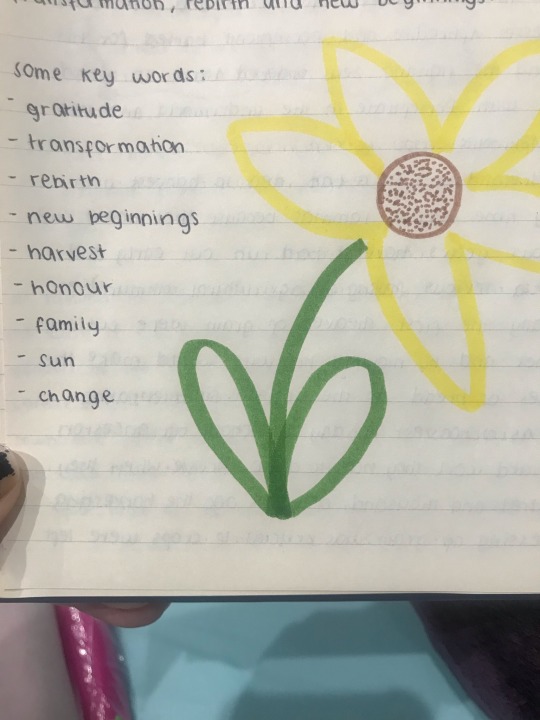 transformation, rebirth and new beginnings.
some key words:
- gratitude
- transformation
- rebirth
- new beginnings
- harvest
- honour
- family
- sun
- change